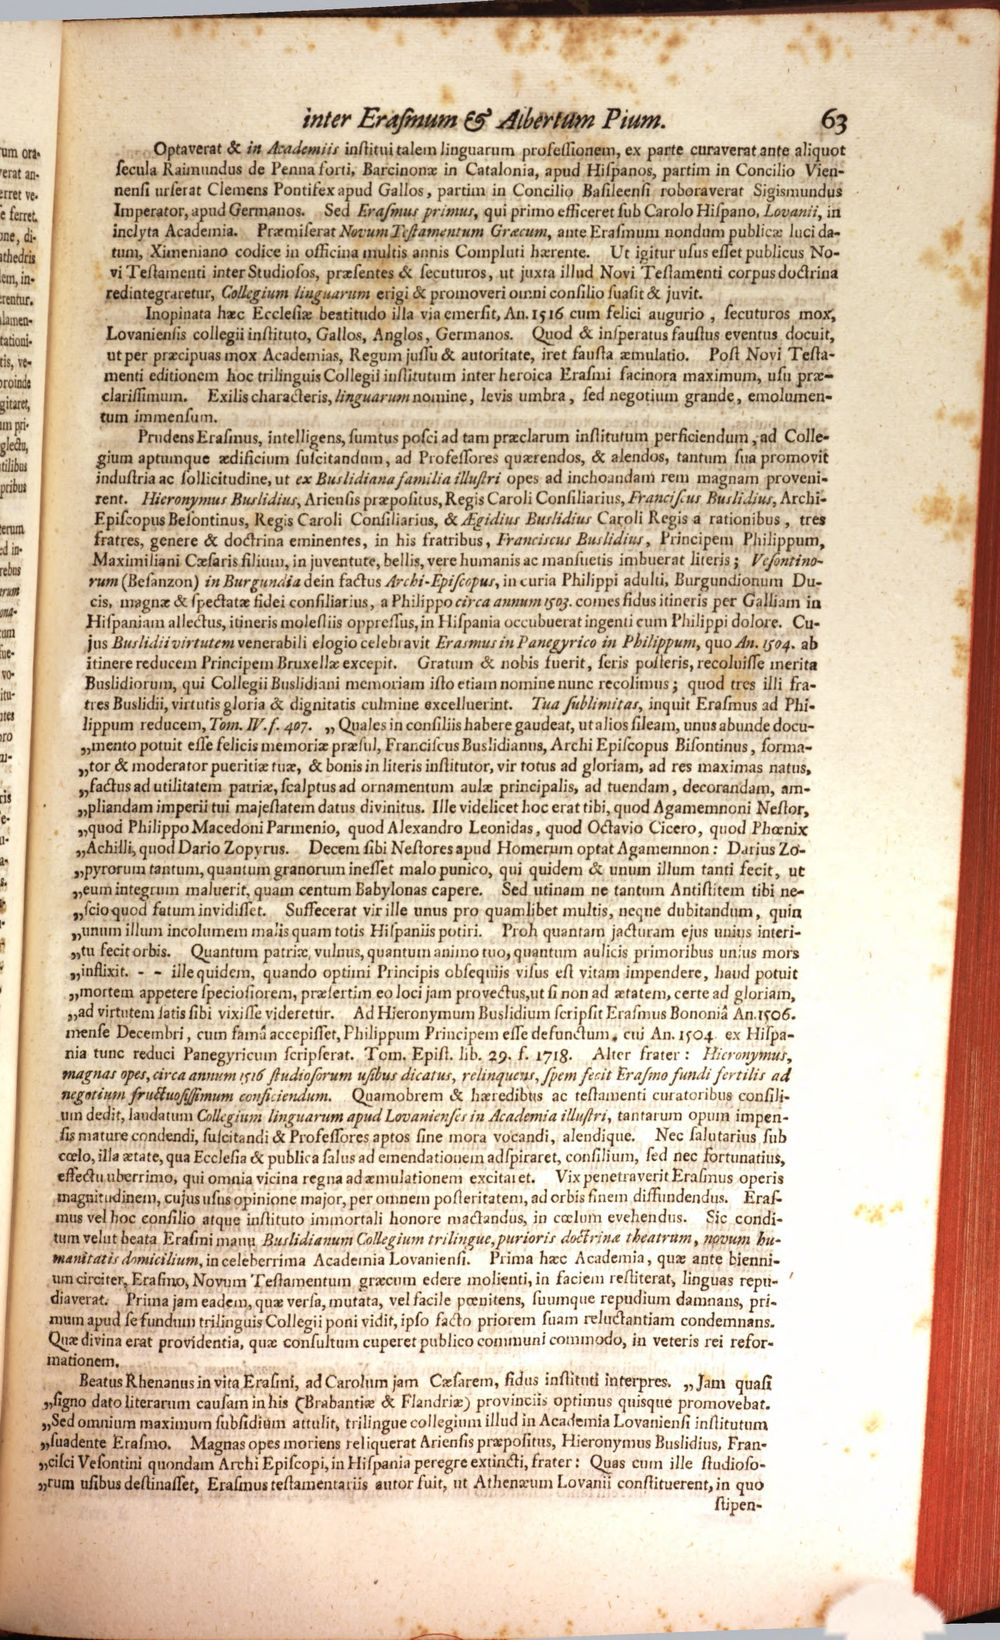 inter Eraſmum & Albertum Pium. 63
Optaverat & in Academiis inſtitui talem linguarum profeſſionem, ex parte curaverat ante aliquot
ſecula Raimundus de Penna forti, Barcinonæ in Catalonia, apud Hiſpanos, partim in Concilio Vien-
nenſi urſerat Clemens Pontifex apud Gallos, partim in Concilio Baſileenſi roboraverat Sigismundus
Imperator, apud Germanos. Sed Eraſmus primus, qui primo efficeret ſub Carolo Hiſpano, Lovanii, in
inclyta Academia. Præmiſerat Novum Teſtamentum Græcum, ante Eraſmum nondum publicæ luci da-
tum, Ximeniano codice in officina multis annis Compluti hærente. Ut igitur uſus eſſet publicus No-
vi Teſtamenti inter Studioſos, præſentes & ſecuturos, ut juxta illud Novi Teſtamenti corpus doctrina
redintegraretur, Collegium linguarum erigi & promoveri omni conſilio ſuaſit & juvit.
Inopinata hæc Eccleſiæ beatitudo illa via emerſit, An. 1516 cum felici augurio, ſecuturos mox,
Lovanienſis collegii inſtituto, Gallos, Anglos, Germanos. Quod & inſperatus fauſtus eventus docuit,
ut per præcipuas mox Academias, Regum juſſu & autoritate, iret fauſta æmulatio. Poſt Novi Teſta-
menti editionem hoc trilinguis Collegii inſtitutum inter heroica Eraſmi facinora maximum, uſu præ-
clariſſimum. Exilis characteris, linguarum nomine, levis umbra, ſed negotium grande, emolumen-
tum immenſum.
Prudens Eraſmus, intelligens, ſumtus poſci ad tam præclarum inſtitutum perficiendum, ad Colle-
gium aptumque ædificium ſuſcitandum, ad Profeſſores quærendos, & alendos, tantum ſua promovit
induſtria ac ſollicitudine, ut ex Buslidiana familia illuſtri opes ad inchoandam rem magnam proveni-
rent. Hieronymus Buslidius, Arienſis præpoſitus, Regis Caroli Conſiliarius, Franciſcus Buslidius, Archi-
Epiſcopus Beſontinus, Regis Caroli Conſiliarius, & Ægidius Buslidius Caroli Regis a rationibus, tres
fratres, genere & doctrina eminentes, in his fratribus, Franciscus Buslidius, Principem Philippum,
Maximiliani Cæſaris filium, in juventute, bellis, vere humanis ac manſuetis imbuerat literis; Veſontino-
rum (Beſanzon) in Burgundia dein factus Archi-Epiſcopus, in curia Philippi adulti, Burgundionum Du-
cis, magnæ & ſpectatæ fidei conſiliarius, a Philippo circa annum 1503. comes fidus itineris per Galliam in
Hiſpaniam allectus, itineris moleſtiis oppreſſus, in Hiſpania occubuerat ingenti cum Philippi dolore. Cu-
jus Buslidii virtutem venerabili elogio celebravit Erasmus in Panegyrico in Philippum, quo An. 1504. ab
itinere reducem Principem Bruxellæ excepit. Gratum & nobis fuerit, ſeris poſteris, recoluiſſe merita
Buslidiorum, qui Collegii Buslidiani memoriam iſto etiam nomine nunc recolimus; quod tres illi fra-
tres Buslidii, virtutis gloria & dignitatis culmine excelluerint. Tua ſublimitas, inquit Eraſmus ad Phi-
lippum reducem, Tom. IV. f. 407. „Quales in conſiliis habere gaudeat, ut alios ſileam, unus abunde docu-
„mento potuit eſſe felicis memoriæ præſul, Franciſcus Buslidianus, Archi Epiſcopus Biſontinus, forma-
„tor & moderator pueritiæ tuæ, & bonis in literis inſtitutor, vir totus ad gloriam, ad res maximas natus,
„factus ad utilitatem patriæ, ſcalptus ad ornamentum aulæ principalis, ad tuendam, decorandam, am-
„pliandam imperii tui majeſtatem datus divinitus. Ille videlicet hoc erat tibi, quod Agamemnoni Neſtor,
„quod Philippo Macedoni Parmenio, quod Alexandro Leonidas, quod Octavio Cicero, quod Phœnix
„Achilli, quod Dario Zopyrus. Decem ſibi Neſtores apud Homerum optat Agamemnon: Darius Zo-
„pyrorum tantum, quantum granorum ineſſet malo punico, qui quidem & unum illum tanti fecit, ut
„eum integrum maluerit, quam centum Babylonas capere. Sed utinam ne tantum Antiſtitem tibi ne-
„ſcio quod fatum invidiſſet. Suffecerat vir ille unus pro quamlibet multis, neque dubitandum, quin
„unum illum incolumem malis quam totis Hiſpaniis potiri. Proh quantam jacturam ejus unius interi-
„tu fecit orbis. Quantum patriæ, vulnus, quantum animo tuo, quantum aulicis primoribus unius mors
„inflixit. - - ille quidem, quando optimi Principis obſequiis viſus eſt vitam impendere, haud potuit
„mortem appetere ſpecioſiorem, præſertim eo loci jam provectus, ut ſi non ad ætatem, certe ad gloriam,
„ad virtutem ſatis ſibi vixiſſe videretur. Ad Hieronymum Buslidium ſcripſit Eraſmus Bononiâ An. 1506.
menſe Decembri, cum famâ accepiſſet, Philippum Principem eſſe defunctum, cui An. 1504 ex Hiſpa-
nia tunc reduci Panegyricum ſcripſerat. Tom. Epiſt. lib. 29. f. 1718. Alter frater: Hieronymus,
magnas opes, circa annum 1516 ſtudioſorum uſibus dicatus, relinquens, ſpem fecit Eraſmo fundi fertilis ad
negotium fructuoſiſſimum conficiendum. Quamobrem & hæredibus ac teſtamenti curatoribus conſili-
um dedit, laudatum Collegium linguarum apud Lovanienſes in Academia illuſtri, tantarum opum impen-
ſis mature condendi, ſuſcitandi & Profeſſores aptos ſine mora vocandi, alendique. Nec ſalutarius ſub
cœlo, illa ætate, qua Eccleſia & publica ſalus ad emendationem adſpiraret, conſilium, ſed nec fortunatius,
effectu uberrimo, qui omnia vicina regna ad æmulationem excitaret. Vix penetraverit Eraſmus operis
magnitudinem, cujus uſus opinione major, per omnem poſteritatem, ad orbis finem diffundendus. Eraſ-
mus vel hoc conſilio atque inſtituto immortali honore mactandus, in cœlum evehendus. Sic condi-
tum velut beata Eraſmi manu Buslidianum Collegium trilingue, purioris doctrinæ theatrum, novum hu-
manitatis domicilium, in celeberrima Academia Lovanienſi. Prima hæc Academia, quæ ante bienni-
um circiter, Eraſmo, Novum Teſtamentum græcum edere molienti, in faciem reſtiterat, linguas repu-
diaverat. Prima jam eadem, quæ verſa, mutata, vel facile pœnitens, ſuumque repudium damnans, pri-
mum apud ſe fundum trilinguis Collegii poni vidit, ipſo facto priorem ſuam reluctantiam condemnans.
Quæ divina erat providentia, quæ conſultum cuperet publico communi commodo, in veteris rei refor-
mationem.
Beatus Rhenanus in vita Eraſmi, ad Carolum jam Cæſarem, fidus inſtituti interpres. „Jam quaſi
„ſigno dato literarum cauſam in his (Brabantiæ & Flandriæ) provinciis optimus quisque promovebat.
„Sed omnium maximum ſubſidium attulit, trilingue collegium illud in Academia Lovanienſi inſtitutum
„ſuadente Eraſmo. Magnas opes moriens reliquerat Arienſis præpoſitus, Hieronymus Buslidius, Fran-
„ciſci Veſontini quondam Archi Epiſcopi, in Hiſpania peregre extincti, frater: Quas cum ille ſtudioſo-
„rum uſibus deſtinaſſet, Eraſmus teſtamentariis autor fuit, ut Athenæum Lovanii conſtituerent, in quo
ſtipen-